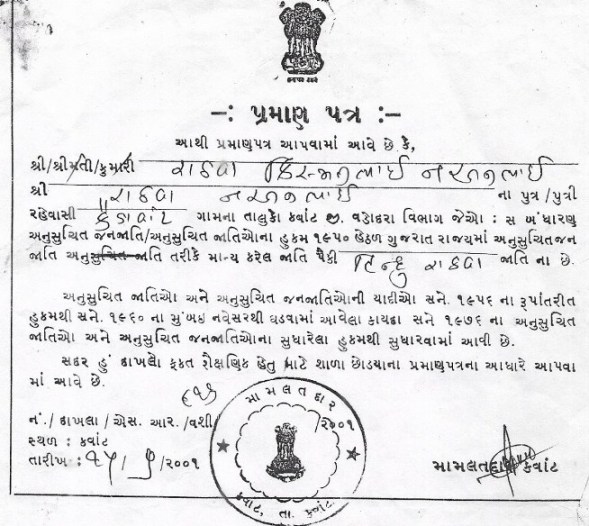 -: પ્રમાણ પત્ર :-
આથી પ્રમાણપત્ર આપવામાં આવે છે કે,
શ્રી/શ્રીમતી/કુમારી રાઠવા નરસનભાઈ
શ્રી રાઠવા નરસનભાઈ ના પુત્ર/પુત્રી
રહેવાસી ગામના તાલુકા કવાંટ જી. વડોદરા વિભાગ જેઓ : સ બંધારણ
અનુસુચિત જનજાતિ/અનુસુચિત જાતિઓના હુકમ ૧૯૫૦ હેઠળ ગુજરાત રાજ્યમાં અનુસુચિતજન
જાતિ અનુસુચિત જાતિ તરીકે માન્ય કરેલ જાતિ પૈકી હિન્દુ રાઠવા જાતિ ના છે.
અનુસુચિત જાતિઓ અને અનુસુચિત જનજાતિઓની યાદીઓ સને. ૧૯૫૬ ના રૂપાંતરીત
હુકમથી સને. ૧૯૬૦ ના મુંબઇ નવેસરથી ઘડવામાં આવેલા કાયદા સને ૧૯૭૬ ના અનુસુચિત
જાતિઓ અને અનુસુચિત જનજાતિઓના સુધારેલા હુકમથી સુધારવામાં આવી છે.
સદર હું દાખલો ફકત શૈક્ષણિક હેતુ માટે શાળા છોડયાના પ્રમાણપત્રના આધારે આપવા
માં આવે છે.
નં./દાખલા/એસ. આર./વશી/ /૨૦૦૧
સ્થળ : કવાંટ
તારીખ : /૨૦૦૧
મામલતદાર
કવાંટ, તા. કવાંટ
મામલતદાર કવાંટ